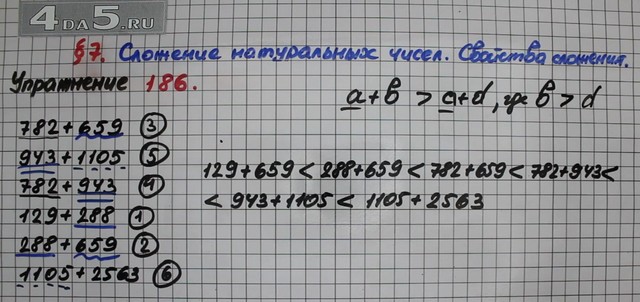 4DA5.RU
§7. Сложение натуральных чисел. Свойства сложения.
Упражнение 186.
a+b > a+d, где b > d
782+659 ③
943+1105 ⑤
782+943 ④
129+288 ①
288+659 ②
1105+2563 ⑥
129+659 < 288+659 < 782+659 < 782+943 <
< 943+1105 < 1105+2563